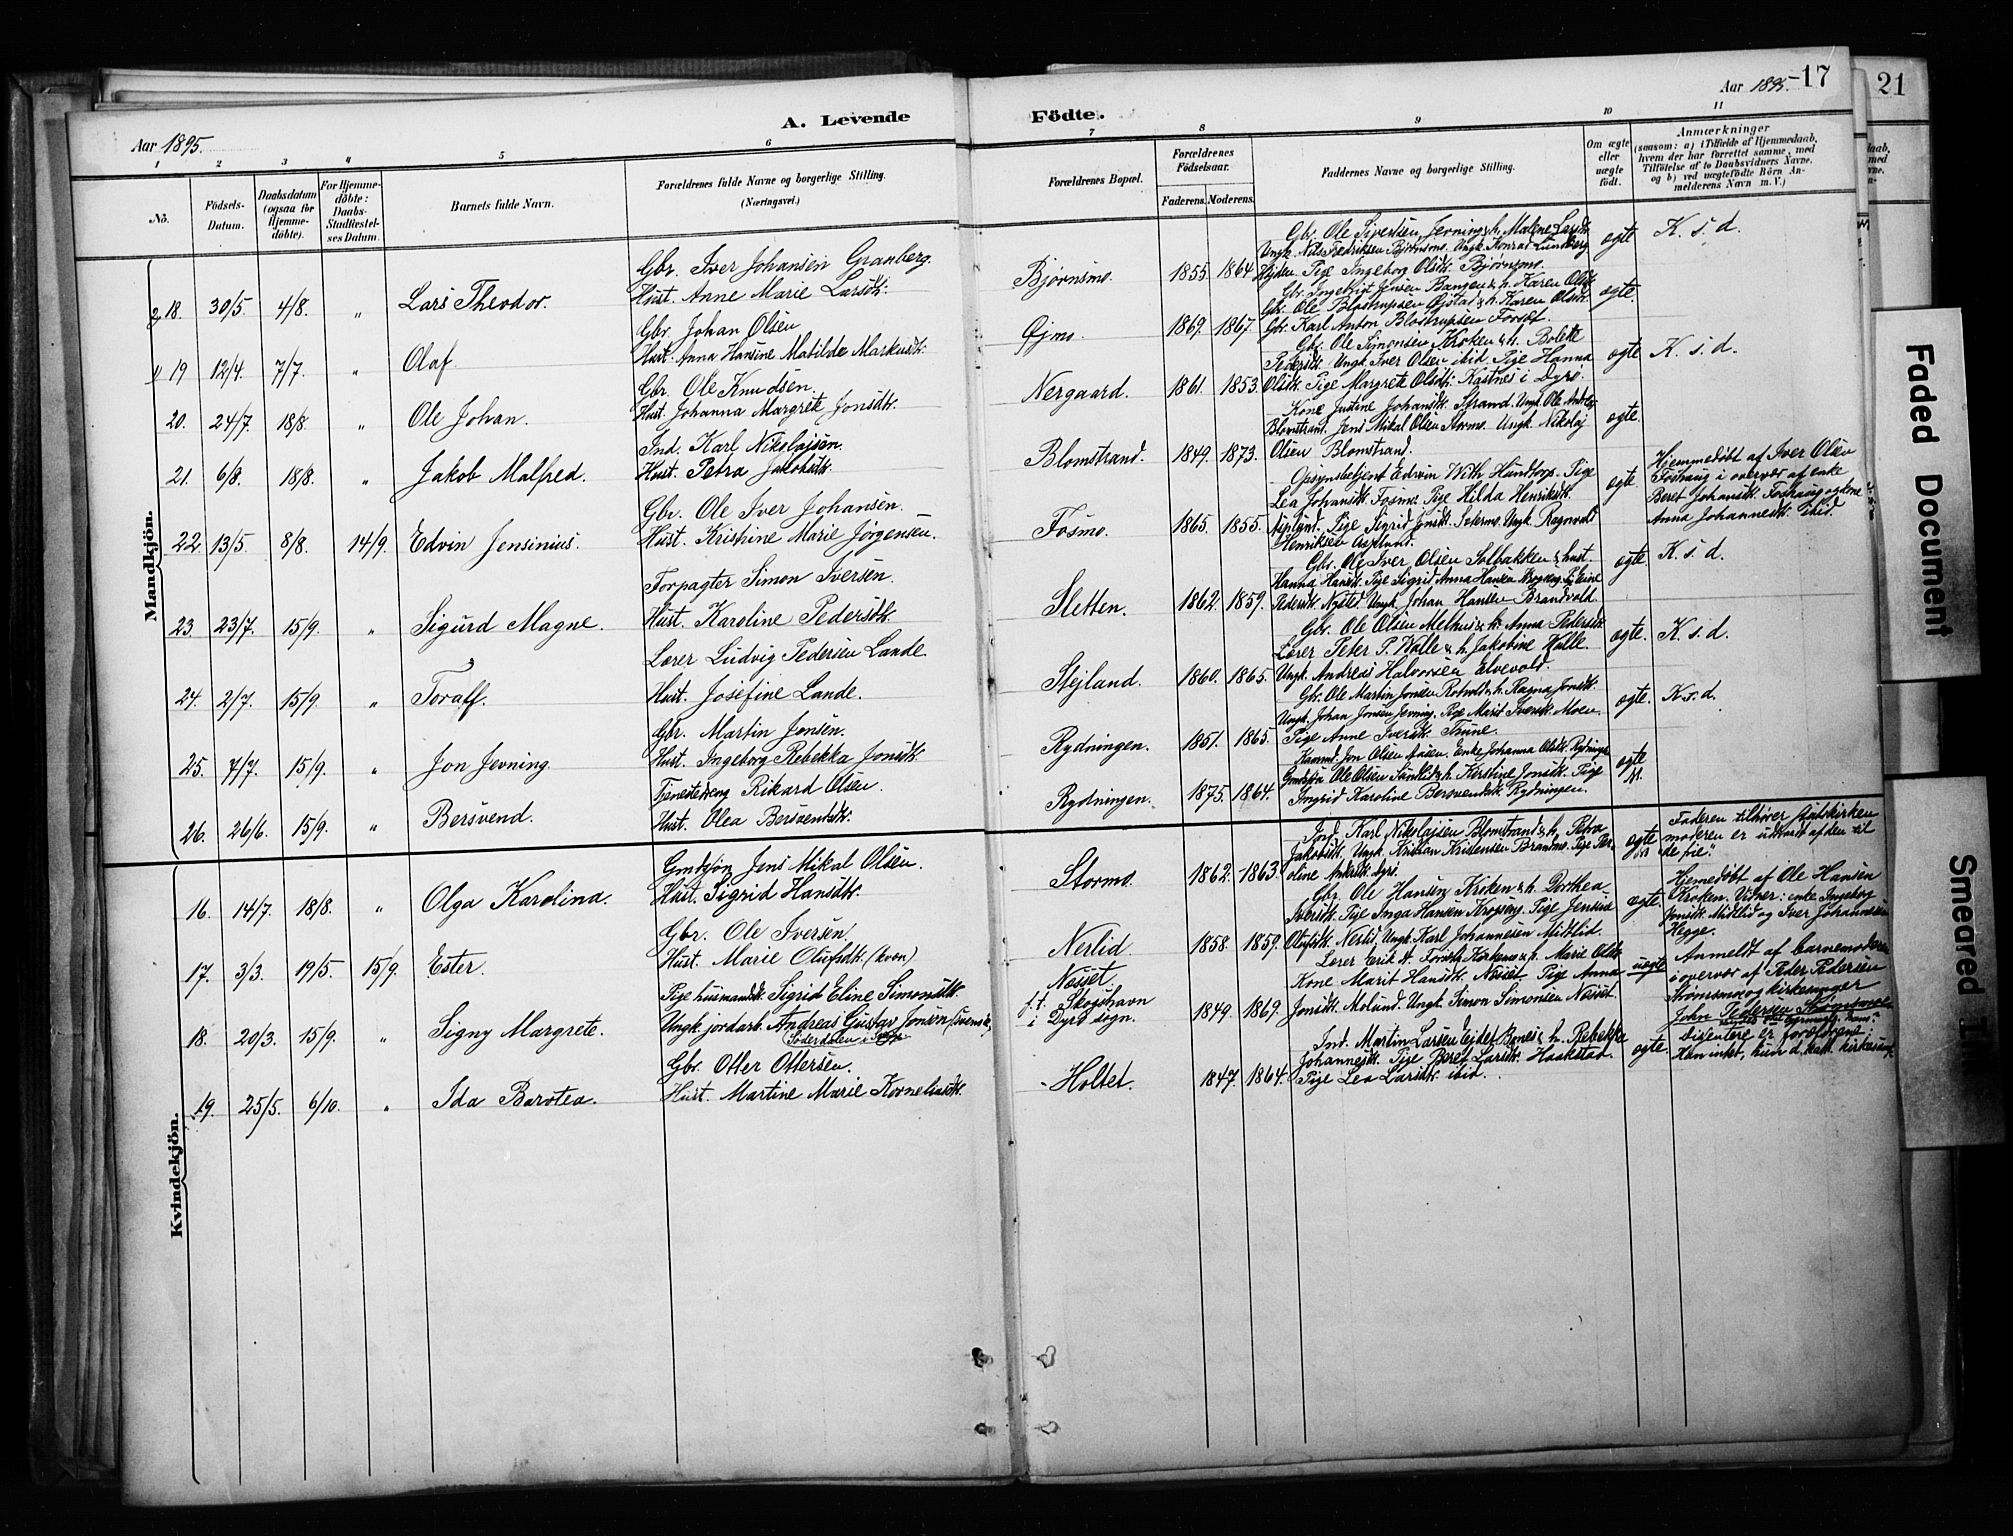 Aar 1895.
A. Levende
Födte.
Aar 1895.
17
21
1 2 3 4 5 6 7 8 9 10 11
No.
Födsels-Datum.
Daabsdatum (ogsaa for Hjemmedöbte).
For Hjemmedöbte: Daabs-Stadfæstelses Datum.
Barnets fulde Navn.
Forældrenes fulde Navne og borgerlige Stilling.
(Næringsvei.)
Forældrenes Bopæl.
Forældrenes Födselsaar.
Faderens. Moderens.
Faddernes Navne og borgerlige Stilling.
Om ægte eller uægte födt.
Anmærkninger
(saasom: a) i Tilfælde af Hjemmedaab, hvem der har forrettet samme, med Tilföielse af to Daabsvidners Navne. og b) ved uægtefödte Börn Anmelderens Navn m. V.)
Mandkjön.
18. 30/5. 4/8. " Lars Theodor.
Gbr. Iver Johansen Granberg.
Hust. Anne Marie Larsdtr.
Bjørnsmo. 1855. 1864
Gbr. Ole Sivertsen Jerning & h. Malene Larsdtr.
Ungk. Nils Fredriksen Bjørnsmo. Ungk. Konrad Lundberg
Pige Ingeborg Olsdtr. Bjørnsmo.
ægte K. s. d.
19 12/4. 7/7. " Olaf.
Gbr. Johan Olsen
Hust. Anna Hansine Matilde Markusdtr.
Øjmo. 1869. 1867.
Gbr. Ingebrigt Jensen Bangen & h. Karen Olsdtr.
Gbr. Ole Blostrupsen Øjstad & h. Karen Olsdtr.
Gbr. Karl Anton Blostrupsen Forset.
ægte.
20. 24/7. 18/8. " Ole Johan.
Gbr. Ole Knudsen.
Hust. Johanna Margrete Jonsdtr.
Nergaard. 1861. 1853.
Gbr. Ole Simonsen Kroken & h. Bolette
Pedersdtr. Ungk. Iver Olsen ibid. Pige Hanna
Olsdtr. Pige Margrete Olsdtr. Kastnes i Dyrø.
ægte K. s. d.
21. 6/8. 18/8. " Jakob Malfred.
Ind. Karl Nikolajsen.
Hust. Petra Jakobsdtr.
Blomstrand. 1849. 1873.
Kone Justine Johansdtr. Strand. Ungk. Ole Andreas
Blomstrand. Jens Mikal Olsen Stormo. Ungk. Nikolaj
Olsen Blomstrand.
ægte.
22. 13/5. 8/8. 14/9. Edvin Jensinius.
Gbr. Ole Iver Johansen.
Hust. Kristine Marie Jørgensen.
Fosmo. 1865. 1855.
Opsynsbetjent Edvin With Hundtorp. Pige
Lea Johansdtr. Fosmo. Pige Hilda Henriksdtr.
Asplund. Pige Sigrid Jonsdtr. Setermo. Ungk. Ragnvald
Henriksen Asplund.
ægte
Hjemmedøbt af Iver Olsen
Foshaug i overvær af enke
Beret Johansdtr. Foshaug og kone
Anna Johannesdtr. ibid.
23. 23/7. 15/9. " Sigurd Magne.
Forpagter Simon Iversen.
Hust. Karoline Pedersdtr.
Sletten. 1862. 1859.
Gbr. Ole Iver Olsen Solbakken & hust
Hanna Hansdtr. Pige Sigrid Anna Hansen Krogseng. Pige Eline
Pedersdtr. Nysted. Ungk. Johan Hansen Brandvold.
ægte K. s. d.
24. 2/7. 15/9. " Toralf.
Lærer Ludvig Pedersen Lande.
Hust. Josefine Lande.
Stejland. 1860. 1865.
Gbr. Ole Olsen Melhus & h. Anna Pedersdtr.
Lærer Peter P. Walle & h. Jakobine Walle.
Ungk. Andreas Halvorsen Elvevold.
ægte. K. s. d.
25. 7/7. 15/9. " Jon Jerning.
Gbr. Martin Jonsen.
Hust. Ingeborg Rebekka Jonsdtr.
Rydningen. 1851. 1865.
Gbr. Ole Martin Jonsen Rotvold & h. Ragna Jonsdtr.
Ungk. Johan Jonsen Jerning. Pige Marit Iversdtr. Moen.
Pige Anne Iversdtr. Thune.
ægte. K. s. d.
26. 26/6. 15/9. " Bersvend.
Tjenestedreng Rikard Olsen.
Hust. Olea Bersvendsdtr.
Rydningen. 1875. 1864.
Kaarmd. Jon Olsen Aasen. Enke Johanna Olsdtr. Rydningen
Gmdssøn Ole Olsen Sandlid & h. Kirstine Jonsdtr. Pige
Ingrid Karoline Bersvendsdtr. Rydningen.
ægte
Kvindekjön.
16. 14/7. 18/8. " Olga Karolina.
Gmdssøn Jens Mikal Olsen.
Hust. Sigrid Hansdtr.
Stormo. 1862. 1863.
Ind. Karl Nikolajsen Blomstrand & h. Petra
Jakobsdtr. Ungk. Kristian Kristensen Brandmo. Pige
ægte
Faderen tilhører statskirken
moderen er udtraadt af den til
"de frie".
17. 3/3. 19/5. 15/9. Ester.
Gbr. Ole Iversen.
Hust. Marie Olufsdtr. (kvæn)
Nerlid. 1858. 1859.
Gbr. Ole Hansen Kroken & h. Dorthea
Iversdtr. Pige Inga Hansen Krogseng. Pige Jensine
Olufsdtr. Nerlid. Ungk. Karl Johannesen Midtlid.
ægte
Hjemmedøbt af Ole Hansen
Kroken. Vidner: enke Ingeborg
Jonsdtr. Midtlid og Iver Johannesen
Hegge.
18. 20/3. 15/9. " Signy Margrete.
Pige husmandsdtr. Sigrid Eline Simonsdtr.
Ungk. jordarb. Andreas Gustav Jonsen (svenske)
Nesset
f. t. Skogshavn
i Dyrø sogn.
1849. 1869.
Kone Marit Hansdtr. Nesset. Pige Anna
Jonsdtr. Moland. Ungk. Simon Simonsen Nesset.
uægte
Anmeldt af barnemoderen
i overvær af Peder Pedersen
Strømsmo og kirkesanger
John Pedersen Strømsmo
19. 25/5. 6/10. " Ida Barotea.
Gbr. Otter Ottersen.
Hust. Martine Marie Korneliusdtr.
Holtet. 1847. 1864.
Ind. Martin Larsen Ejde Bones & h. Rebekke
Johannesdtr. Pige Beret Larsdtr. Haakstad.
Pige Lea Larsdtr. ibid.
ægte.
Disentere er forældrene;
Faded Document
Smeared